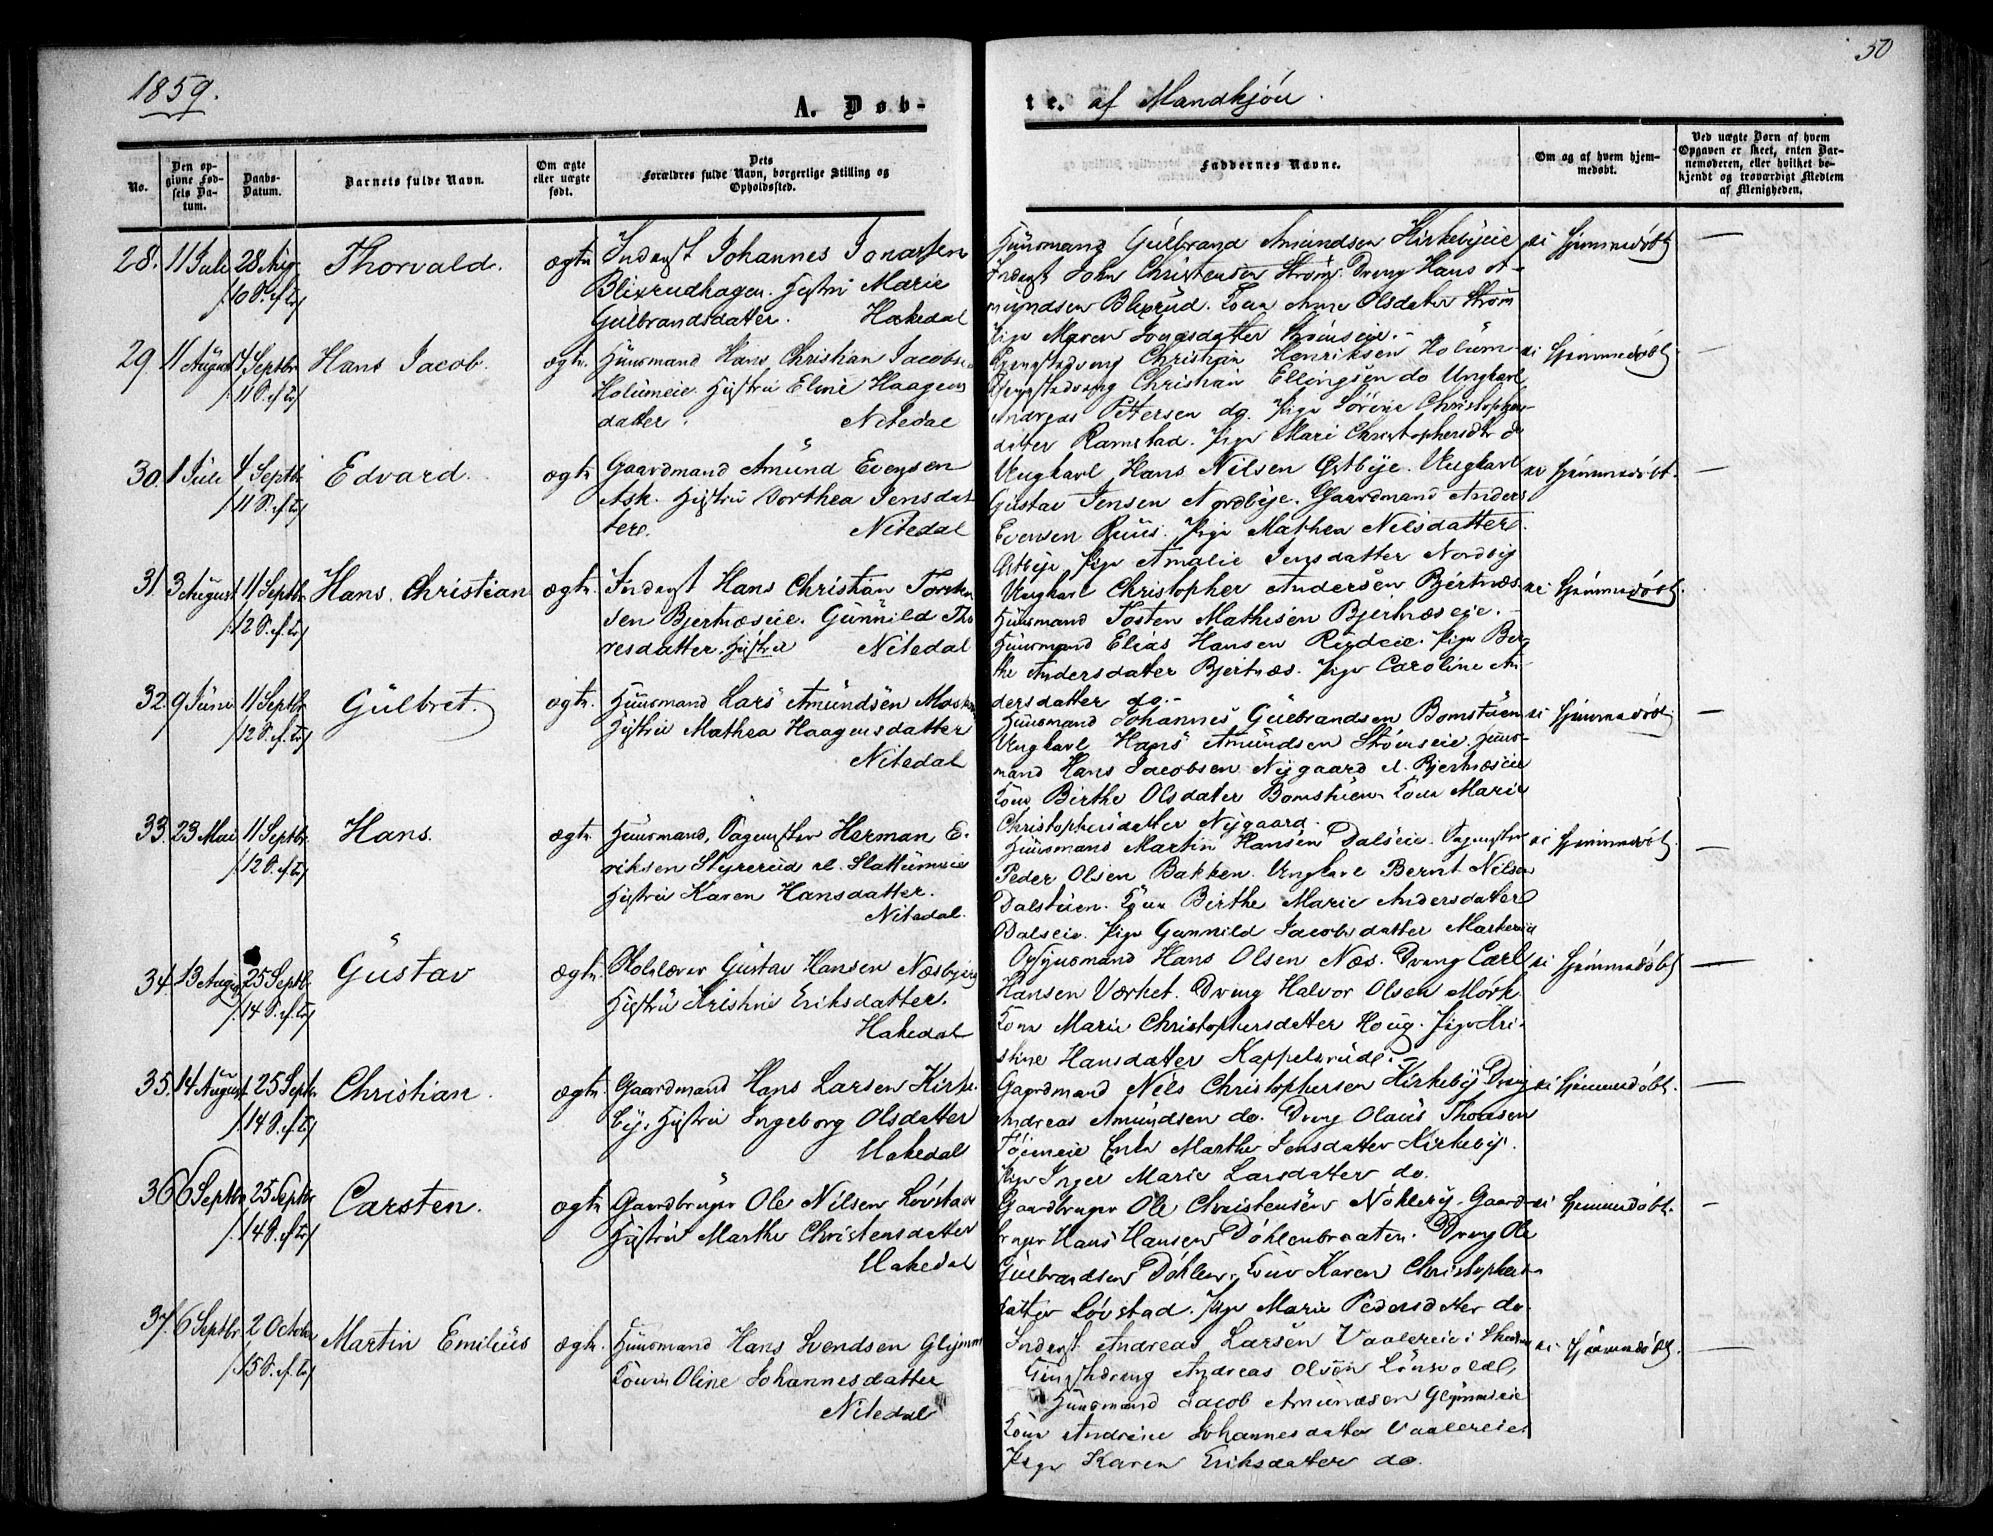 50
1859.
A. Døb-
te. af Mandkjön.
No.
Den op-
givne Fød-
sels Da-
tum.
Daabs-
Datum.
Barnets fulde Navn.
Om ægte
eller uægte
født.
Dets
Forældres fulde Navn, borgerlige Stilling og
Opholdssted.
Faddernes Navne.
Om og af hvem hjem-
medøbt.
Ved uægte Børn af hvem
Opgaven er skeet, enten Bar-
nemoderen, eller hvilket be-
kjendt og troværdigt Medlem
af Menigheden.
28. 11 Juli 28 Aug
10 S. ef. Trf
Thorvald.
ægte
Inderst Johannes Jonassen
Blixrudhagen. Hustru Marie
Gulbrandsdatter. Hakedal
Huusmand Gulbrand Amundsen Kirkebyeie
Inderst John Christensen Strøm. Dreng Hans A-
mundsen Blixrud. Kone Anne Olsdatter Strøm
Pige Maren Jonasdatter Strömseie.
ei hjemmedöbt —
29. 11 August 4 Septbr
11 S. ef. Trf
Hans Jacob.
ægte
Huusmand Hans Christian Jacobsen
Holumeie. Hustru Eline Haagens
datter. Nitedal
Tjenestedreng Christian Henriksen Holum
Tjenestedreng Christian Ellingsen do Ungkarl
Andreas Pettersen do. Pige Sörine Christophers-
datter Ramstad. Pige Mari Christophersdtr do
ei hjemmedöbt —
30. 1 Juli 4 Septbr
11 S. ef. Trf
Edvard.
ægte
Gaardmand Amund Evensen
Ask. Hustru Dorthea Jensdat
ter. Nitedal
Ungkarl Hans Nilsen Østbye. Ungkarl
Gustav Jensen Nordbye. Gaardmand Anders
Evensen Ruus. Pige Mathea Nilsdatter
Østbye Pige Amalie Jensdatter Nordby
ei hjemmedöbt. —
31. 3 August 11 Septbr
12 S. ef. Trf
Hans Christian
ægte.
Inderst Hans Christian Torsten
sen Bjertnæseie. Gunnild Tho
resdatter. Hustru Nitedal
Ungkarl Christopher Andersen Bjertnæs
Huusmand Tosten Mathisen Bjertnæseie.
Huusmand Elias Hansen Rudeie. Pige Ber-
the Andersdatter Bjertnæs. Pige Caroline An-
dersdatter do.
ei hjemmedöbt.
32. 9 Juni 11 Septbr
12 S. ef. Trf
Gulbret.
ægte.
Huusmand Lars Amundsen
Hustru Mathea Haagensdatter
Nitedal
Huusmand Johannes Gulbrandsen Bomstuen
Ungkarl Hans Amundsen Strömseie. Huus-
mand Hans Jacobsen Nygaard Bjertnæseie
Kone Birthe Olsdatter Bomstuen. Kone Marie
Christophersdatter Nygaard.
ei hjemmedöbt. —
33. 23 Mai 11 Septbr
12 S. ef. Trf
Hans.
ægte
Huusmand, Herman E-
riksen Styrerud Slattumeie
Hustru Karen Hansdatter.
Nitedal.
Huusmand Martin Hansen Dalseie.
Peder Olsen Bakken. Ungkarl Bernt Nilsen
Dalstuen. Kone Birthe Marie Andersdatter
Dalseie. Pige Gunnild Jacobsdatter Markerud
ei hjemmedöbt. —
34. 13 August 25 Septbr
14 S. ef. Trf
Gustav
ægte
Gustav Hansen Næsbye
Hustru Kristine Eriksdatter.
Hakedal
Opsynsmand Hans Olsen Næs. Dreng Carl
Hansen Værket. Dreng Halvor Olsen Mörk.
Kone Marie Christophersdatter Houg. Pige Kri-
stine Hansdatter Kappelsrud.
ei hjemmedöbt —
35. 14 August 25 Septbr
14 S. ef. Trf
Christian.
ægte.
Gaardmand Hans Larsen Kirke
by. Hustru Ingeborg Olsdatter
Hakedal
Gaardmand Nils Christophersen Kirkeby Dreng
Andreas Amundsen do. Dreng Olaus Thoresen
Enke Marthe Jensdatter Kirkeby.
Pige Inger Marie Larsdatter do.
ei hjemmedöbt. —
36 6 Septbr 25 Septbr
14 S. ef. Trf
Carsten.
ægte
Gaardbruger Ole Nilsen Lövstad
Hustru Marthe Christensdatter
Hakedal
Gaardbruger Ole Christensen Nökleby. Gaard-
bruger Hans Hansen Döhlenbraaten. Dreng Ole
Gulbrandsen Döhlen. Kone Karen Christophers-
datter Lövstad. Pige Marie Pedersdatter do.
ei hjemmedöbt. —
37. 6 Septbr 2 October
15 S. ef. Trf
Martin Emilius
ægte.
Huusmand Hans Svendsen Glymm
Kone Oline Johannesdatter
Nitedal
Inderst Andreas Larsen Vaalereie
Tjenestedreng Andreas Olsen
Huusmand Jacob Amundsen Glymmeie
Kone Andrine Johannesdatter Vaalereie
Pige Karen Eriksdatter do.
ei hjemmedöbt. —